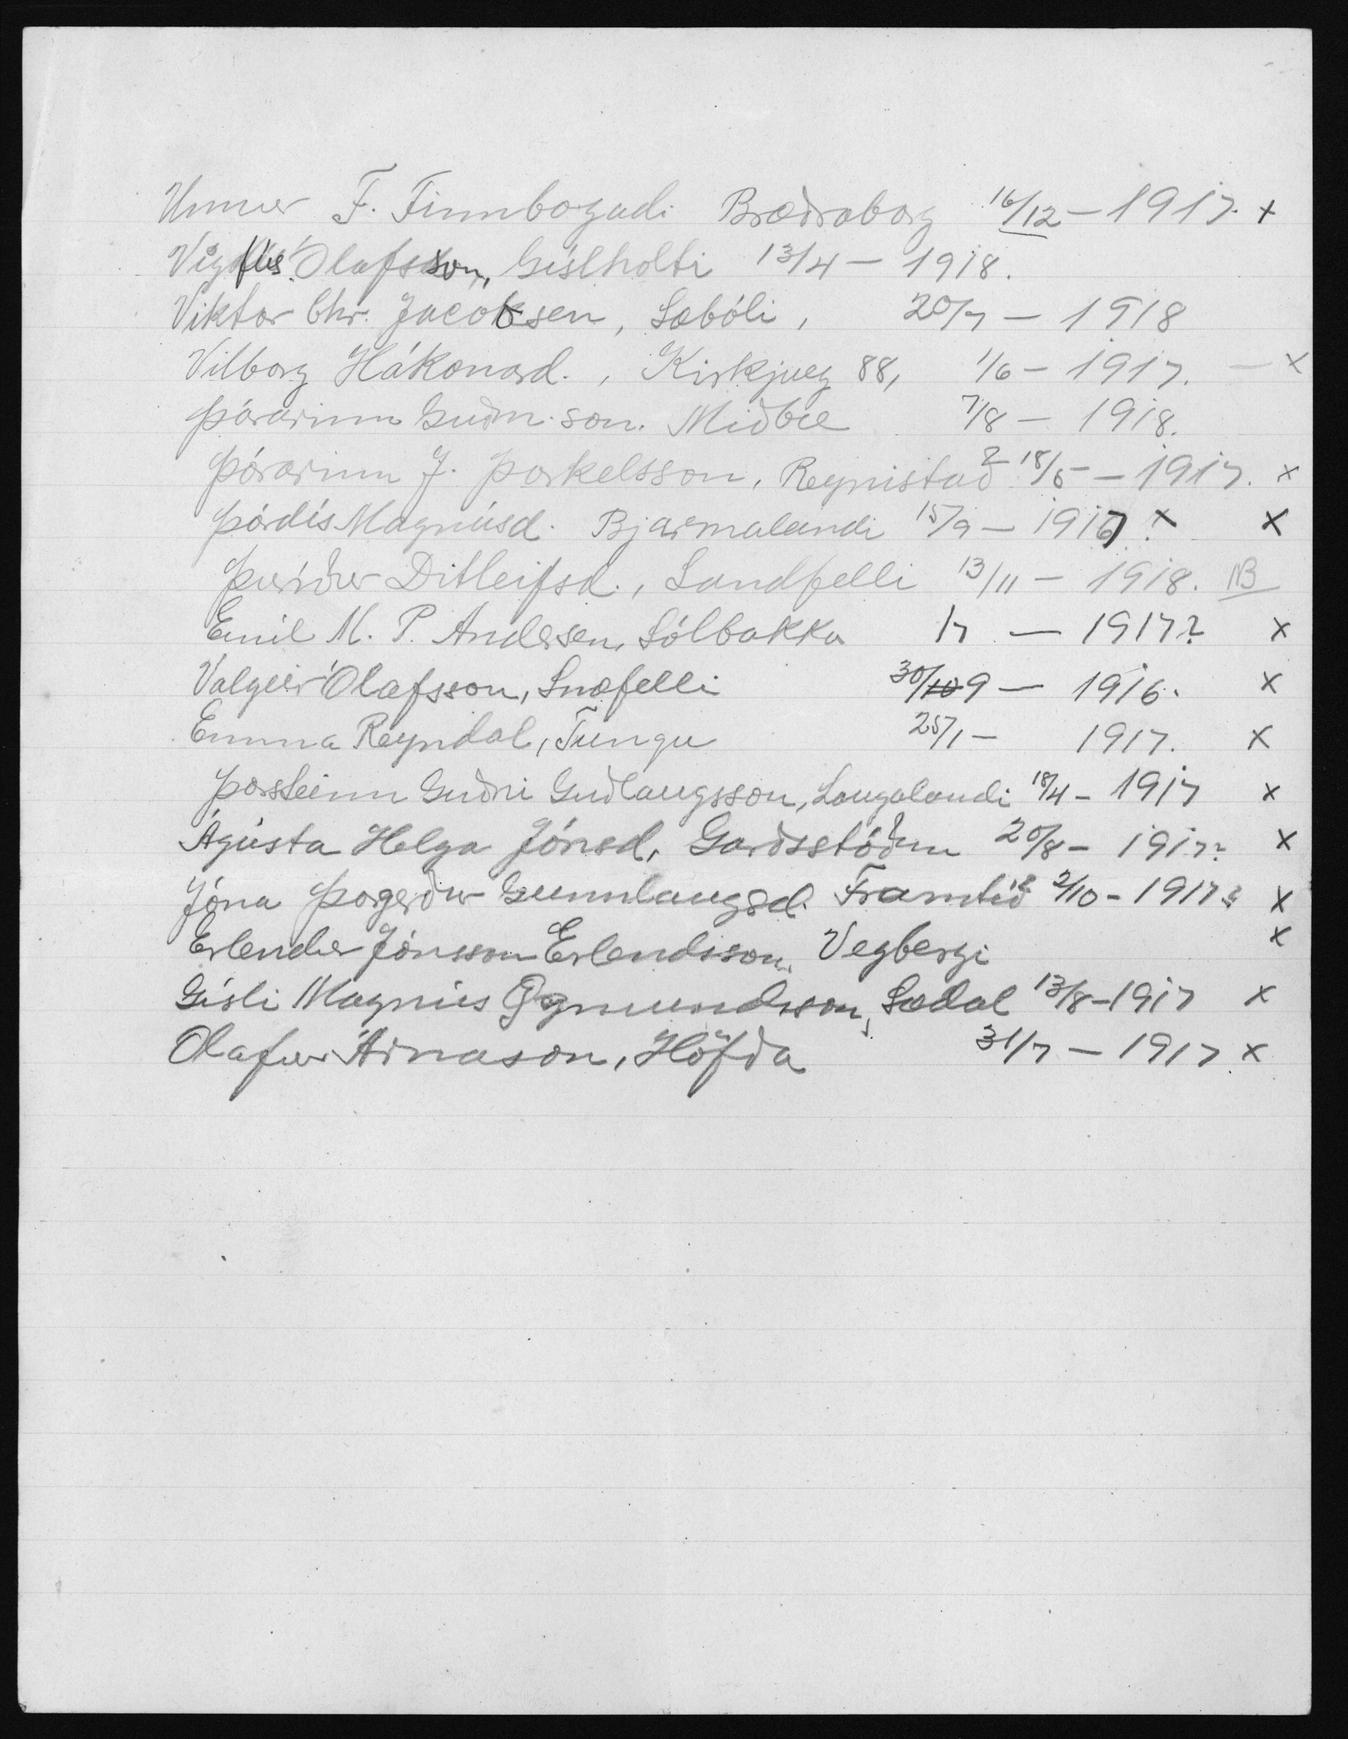 Unnur F. Finnbogad. Bræðraborg 16/12 – 1917. x
Vigfús Ólafsson, Gíslholti 13/4 – 1918.
Viktor Chr. Jacobsen, Sæbóli, 20/7 – 1918
Vilborg Hákonard., Kirkjuveg 88, 1/6 – 1917. – x
Þórarinn Guðm.son. Miðbæ 7/8 – 1918.
Þórarinn J. Þorkelsson, Reynistað ? 18/5 – 1917. x
Þórdís Magnúsd. Bjarmalandi 15/9 – 1917 x x
Þuríður Ditleifsd., Sandfelli 13/11 – 1918. NB
Emil M. P. Andersen, Sólbakka 17 – 1917? x
Valgeir Ólafsson, Snæfelli 30/10 9 – 1916. x
Emma Reyndal, Tungu 25/1 – 1917. x
Þorsteinn Guðni Guðlaugsson, Laugalandi 18/4 – 1917 x
Ágústa Helga Jónsd, Garðsstöðum 20/8 – 1917? x
Jóna Þorgerður Gunnlaugsd. Framtíð ? 2/10 – 1917? x
Erlendur Jónsson Erlendsson, Vegbergi x
Gísli Magnús Ögmundsson, Sædal 13/8 – 1917 x
Ólafur Árnason, Höfða 31/7 – 1917 x